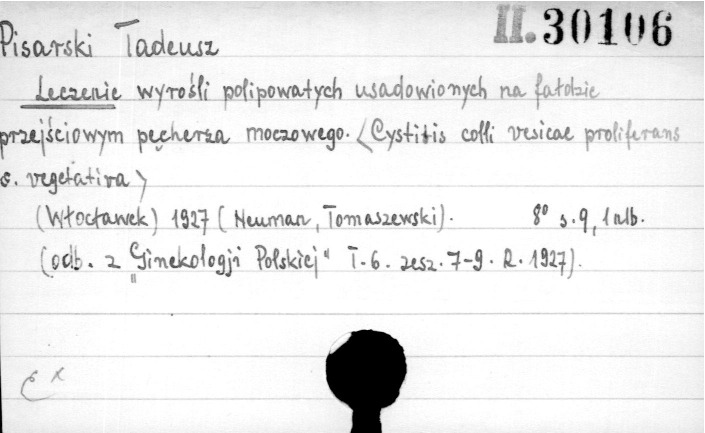 II. 30106
Pisarski Tadeusz
Leczenie wyrośli polipowatych usadowionych na fałdzie
przejściowym pęcherza moczowego. <Cystitis colli vesicae proliferans
s. vegetativa>
(Włocławek) 1927 (Neuman, Tomaszewski). 8° s. 9, 1 nlb.
(odb. z "Ginekologji Polskiej" T. 6. zesz. 7-9. R. 1927).